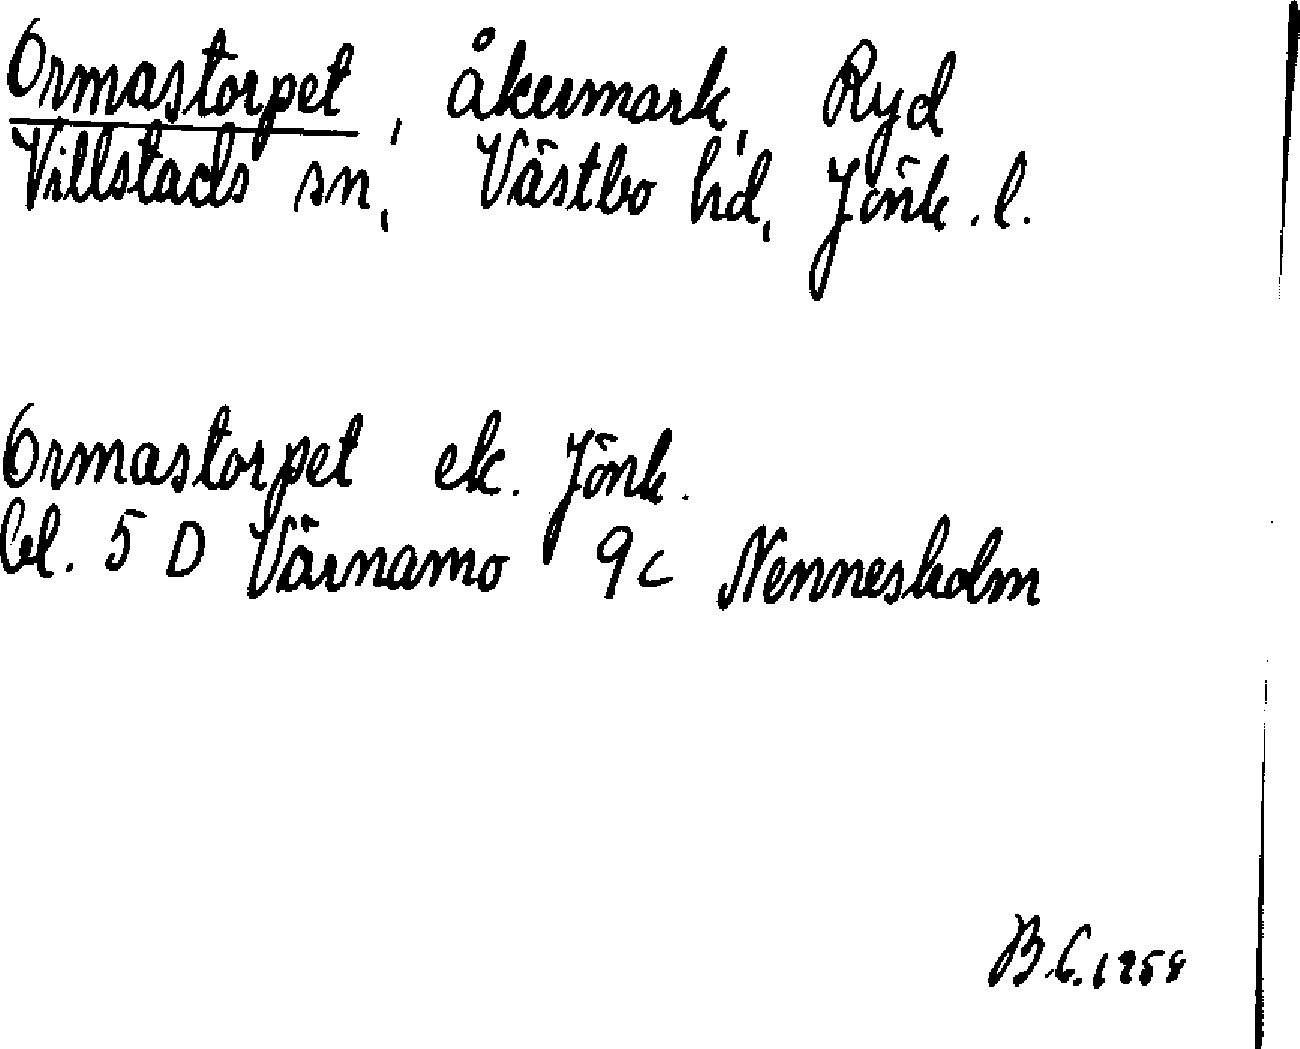 Ormastorpet, åkermark, Ryd
Villstads sn, Västbo hd, Jönk. l.
Ormastorpet ek. Jönk.
bl. 5 D Värnamo 9c Nennesholm
B.G. 1958